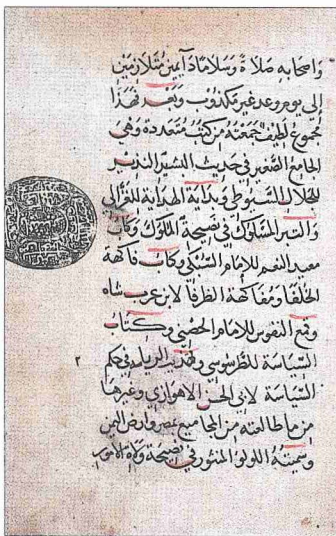 واصحابه صلاة وسلاما دآيمين متلازمين
إلى يوم وعد غير مكذوب وبعد فهذا
مجموع لطيف جمعته من كتب متعددة وهي
الجامع الصغير في حديث البشير النذير
للجلال السيوطي وبداية الهداية للغزالي
والتبر المسلوك في نصيحة الملوك وكتاب
معيد النعم للإمام السبكي وكتاب فاكهة
الخلفا ومفاكهة الظرفا لابن عرب شاه
وقمع النفوس للامام الحصني وكتاب
السياسة للطرسوسي و في حكم
السياسة لابي الحسن الاهوازي وغيرها
من ما طالعته من المجاميع بمصر وارض اليمن
وسميته اللولو المنثور في نصيحة ولاة الامور
٢